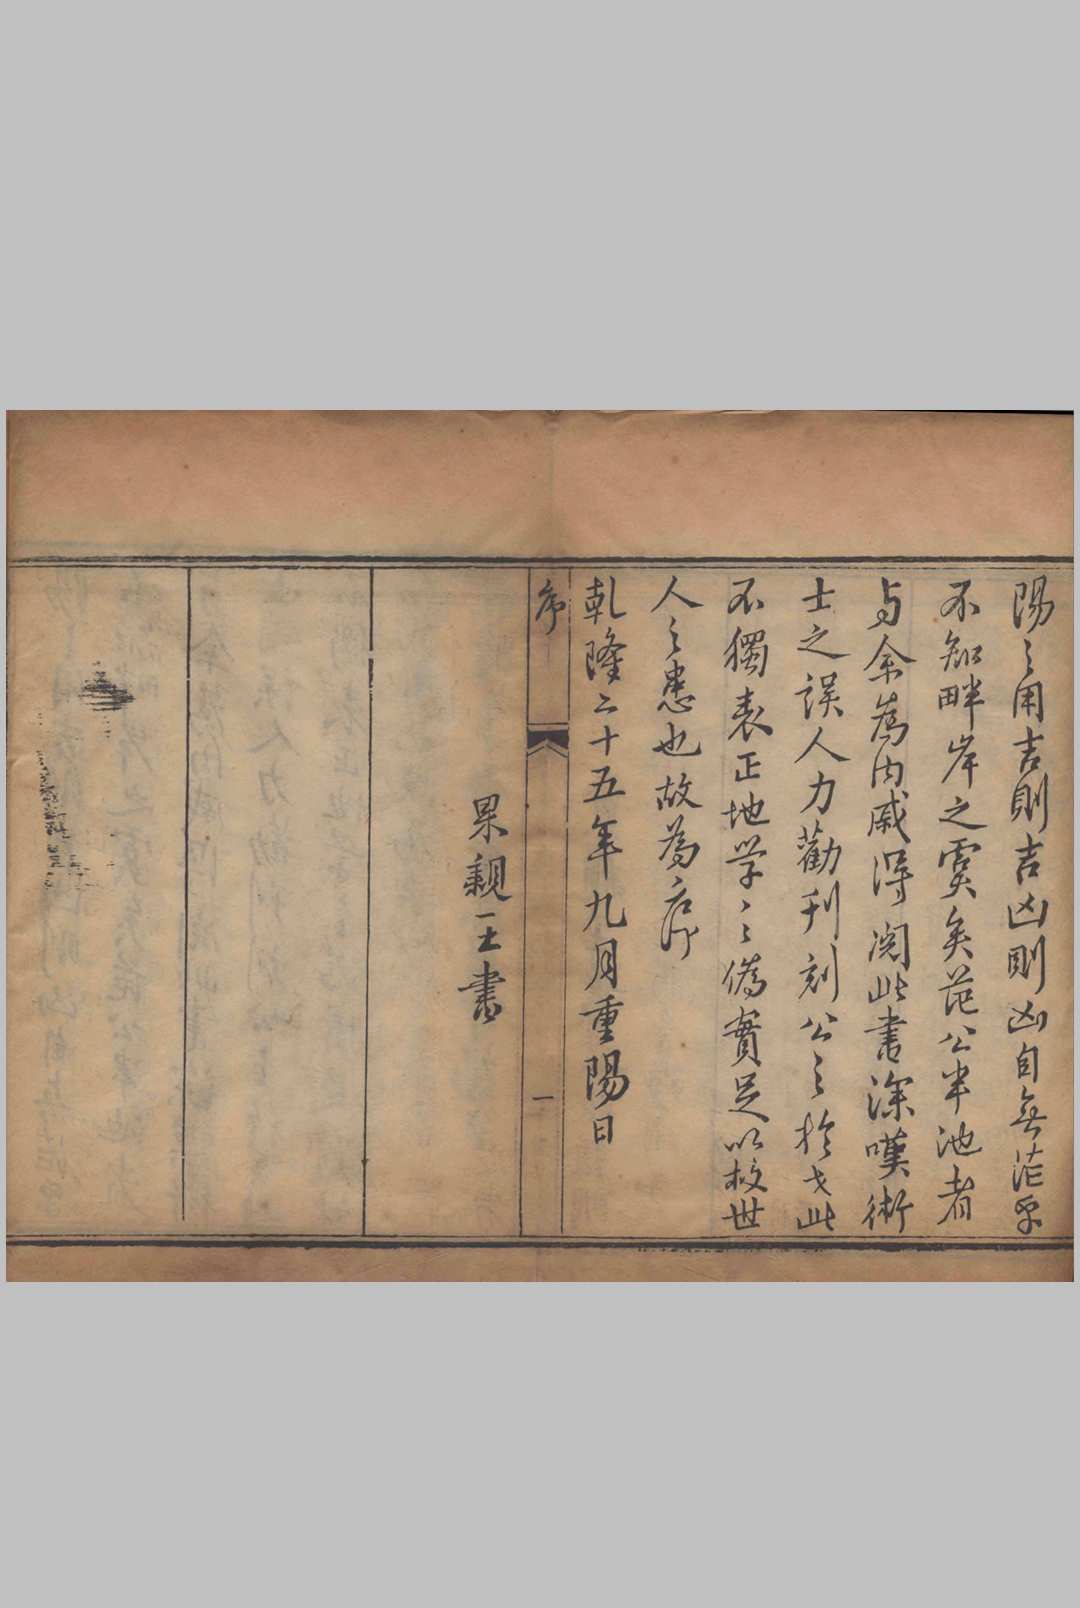 陽之用吉則吉凶則凶自無茫乎
不知畔岸之虞矣范公半池者
与余為内戚得閱此書深嘆術
士之誤人力勸刊刻公之於世此
不獨表正地学之之偽實足以救世
人之患也故為序
乾隆二十五年九月重陽日
序
一
果親王書